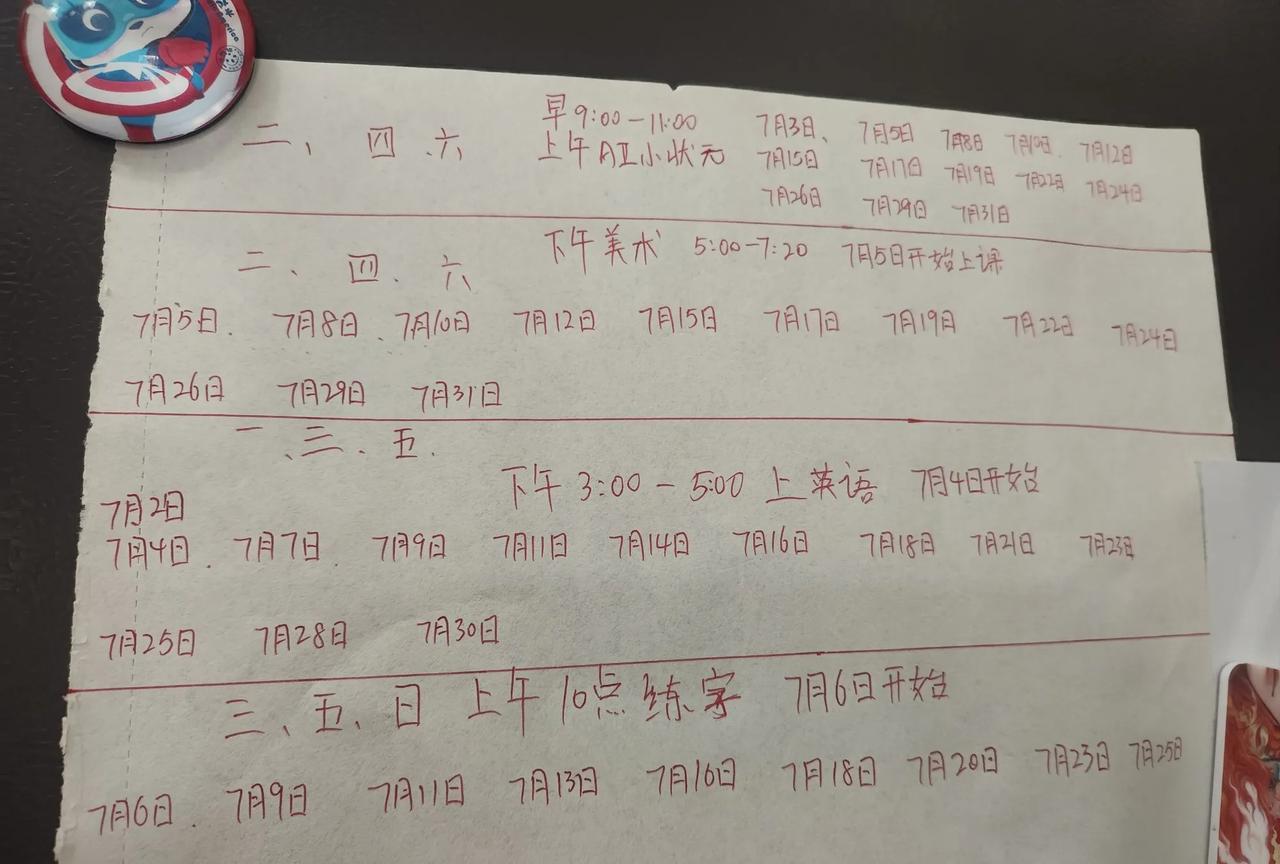 二、四、六 早9:00-11:00 7月3日、7月5日 7月8日 7月10日、7月12日
上午AI小状元 7月15日 7月17日 7月19日 7月22日 7月24日
7月26日 7月29日 7月31日
二、四、六 下午美术 5:00-7:20 7月5日开始上课
7月5日、7月8日、7月10日 7月12日 7月15日 7月17日 7月19日 7月22日 7月24日
7月26日 7月29日 7月31日
一、三、五.
下午3:00-5:00上英语 7月4日开始
7月2日
7月4日.7月7日.7月9日 7月11日 7月14日 7月16日 7月18日 7月21日 7月23日
7月25日 7月28日 7月30日
三、五、日 上午10点练字 7月6日开始
7月6日.7月9日 7月11日 7月13日 7月16日 7月18日 7月20日 7月23日 7月25日